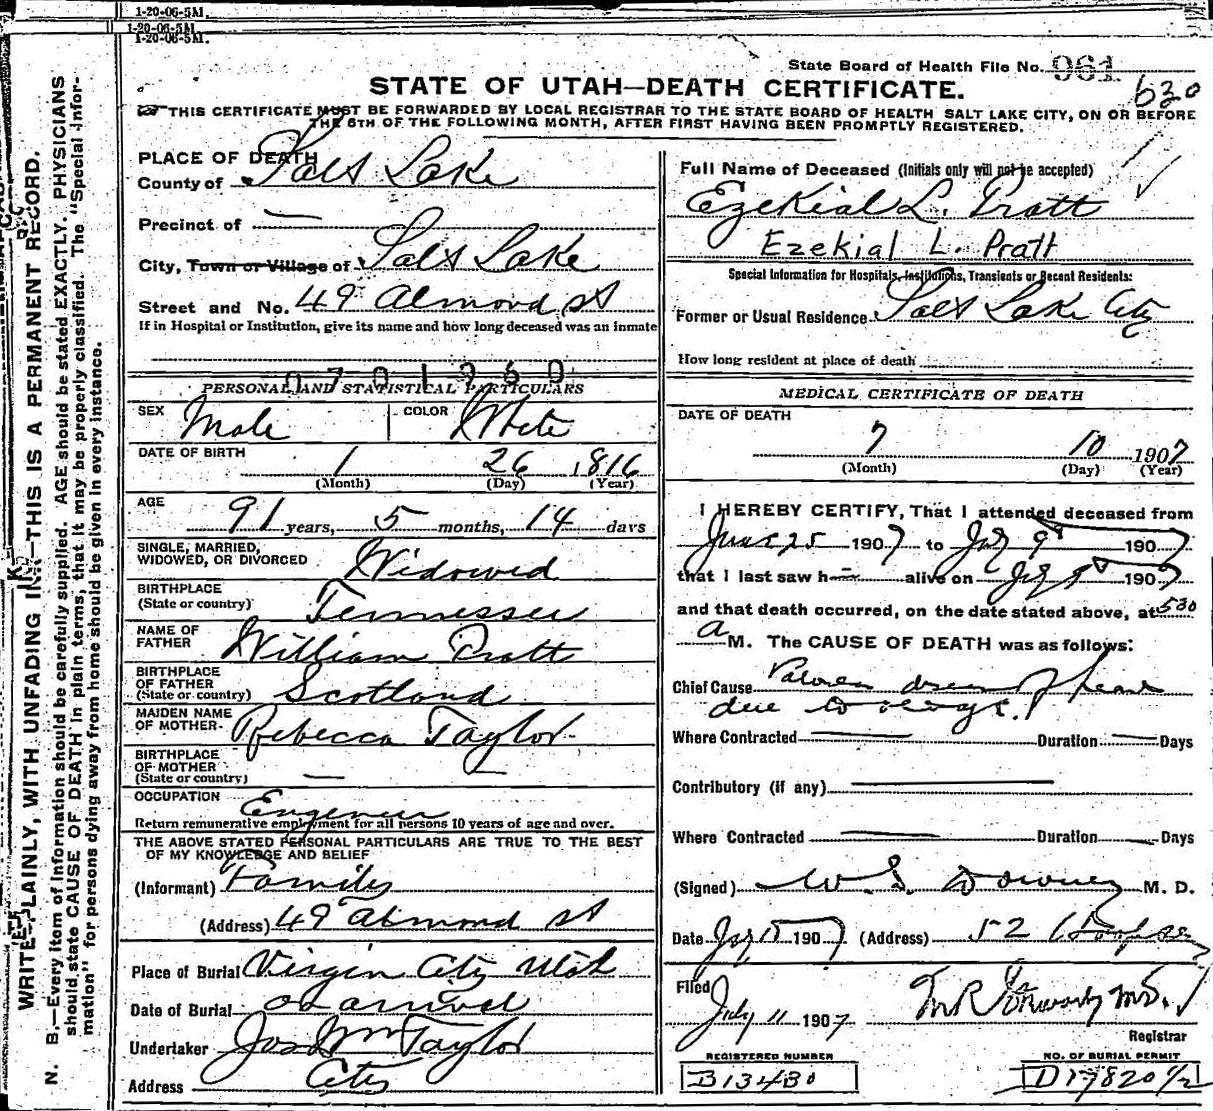 1-20-06-5M.
1-20-06-5M.
1-20-06-5M.
WRITE PLAINLY, WITH UNFADING INK—THIS IS A PERMANENT RECORD.
N. B.—Every item of information should be carefully supplied. AGE should be stated EXACTLY. PHYSICIANS
should state CAUSE OF DEATH in plain terms, that it may be properly classified. The "Special Infor-
mation" for persons dying away from home should be given in every instance.
State Board of Health File No. 961
630
STATE OF UTAH—DEATH CERTIFICATE.
THIS CERTIFICATE MUST BE FORWARDED BY LOCAL REGISTRAR TO THE STATE BOARD OF HEALTH SALT LAKE CITY, ON OR BEFORE
THE 6TH OF THE FOLLOWING MONTH, AFTER FIRST HAVING BEEN PROMPTLY REGISTERED.
PLACE OF DEATH
County of Salt Lake
Precinct of —
City, Town or Village of Salt Lake
Street and No. 49 Almond St
If in Hospital or Institution, give its name and how long deceased was an inmate
0701260
PERSONAL AND STATISTICAL PARTICULARS
SEX Male COLOR White
DATE OF BIRTH 1 26 1816
(Month) (Day) (Year)
AGE 91 years, 5 months, 14 days
SINGLE, MARRIED,
WIDOWED, OR DIVORCED Widowed
BIRTHPLACE
(State or country) Tennessee
NAME OF
FATHER William Pratt
BIRTHPLACE
OF FATHER
(State or country) Scotland
MAIDEN NAME
OF MOTHER Rebecca Taylor
BIRTHPLACE
OF MOTHER
(State or country) —
OCCUPATION Engeneer
Return remunerative employment for all persons 10 years of age and over.
THE ABOVE STATED PERSONAL PARTICULARS ARE TRUE TO THE BEST
OF MY KNOWLEDGE AND BELIEF
(Informant) Family
(Address) 49 Almond St
Place of Burial Virgin City Utah
Date of Burial on arrival
Undertaker Jos Wm Taylor
Address City
Full Name of Deceased (Initials only will not be accepted)
Ezekial L. Pratt
Ezekial L. Pratt
Special Information for Hospitals, Institutions, Transients or Recent Residents:
Former or Usual Residence Salt Lake City
How long resident at place of death
MEDICAL CERTIFICATE OF DEATH
DATE OF DEATH
7 10 1907
(Month) (Day) (Year)
I HEREBY CERTIFY, That I attended deceased from
June 25 1907 to July 9 1907
that I last saw h— alive on July 9 1907
and that death occurred, on the date stated above, at 5 30
a M. The CAUSE OF DEATH was as follows:
Chief Cause of heart
due to old age.
Where Contracted — Duration — Days
Contributory (if any) —
Where Contracted — Duration — Days
(Signed) W. S. Downey M. D.
Date July 15 1907 (Address) 52
Filed
July 11 1907 M.D.
Registrar
REGISTERED NUMBER NO. OF BURIAL PERMIT
B13430 D17820 1/2